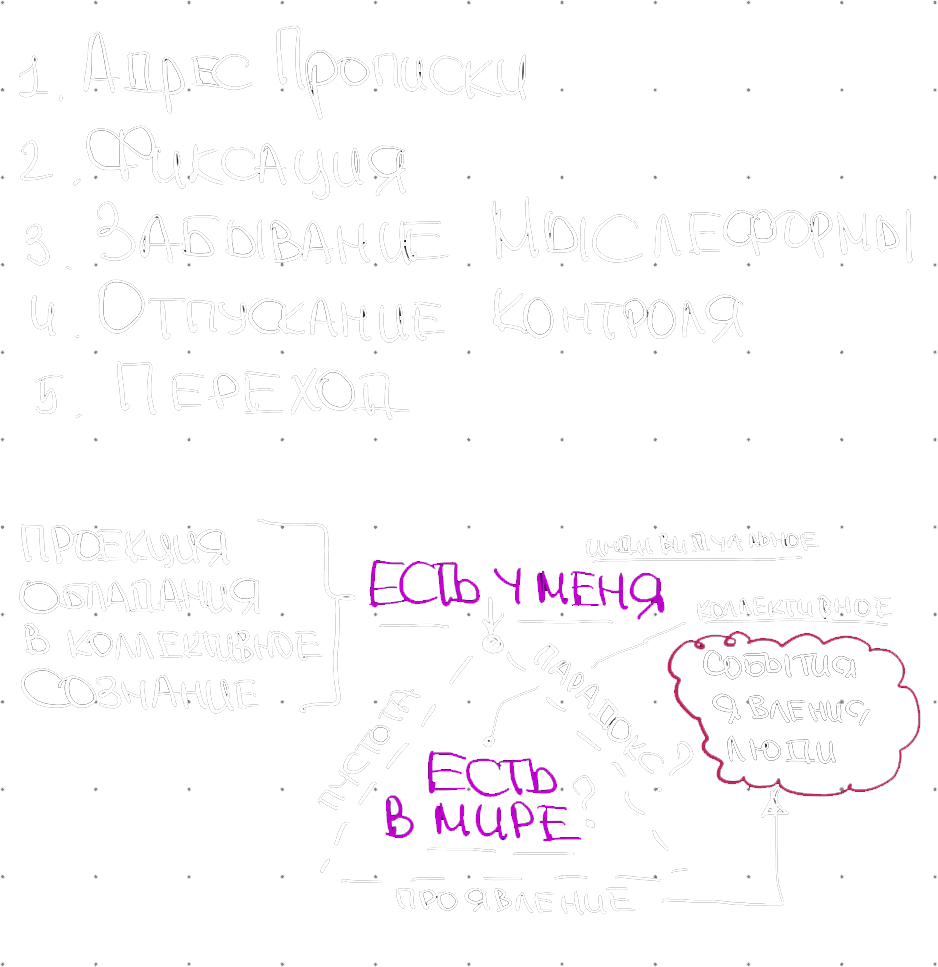 1. Адрес Прописки
2. Фиксация
3. Забывание Мыслеформы
4. Отпускание контроля
5. Переход
ПРОЕКЦИЯ
ОБЛАДАНИЯ
В КОЛЛЕКТИВНОЕ
СОЗНАНИЕ
ИНДИВИДУАЛЬНОЕ
ЕСТЬ У МЕНЯ
КОЛЛЕКТИВНОЕ
СОБЫТИЯ
ЯВЛЕНИЯ
ЛЮДИ
ПУСТОТА
ПАРАДОКС?
ЕСТЬ
В МИРЕ ?
ПРОЯВЛЕНИЕ